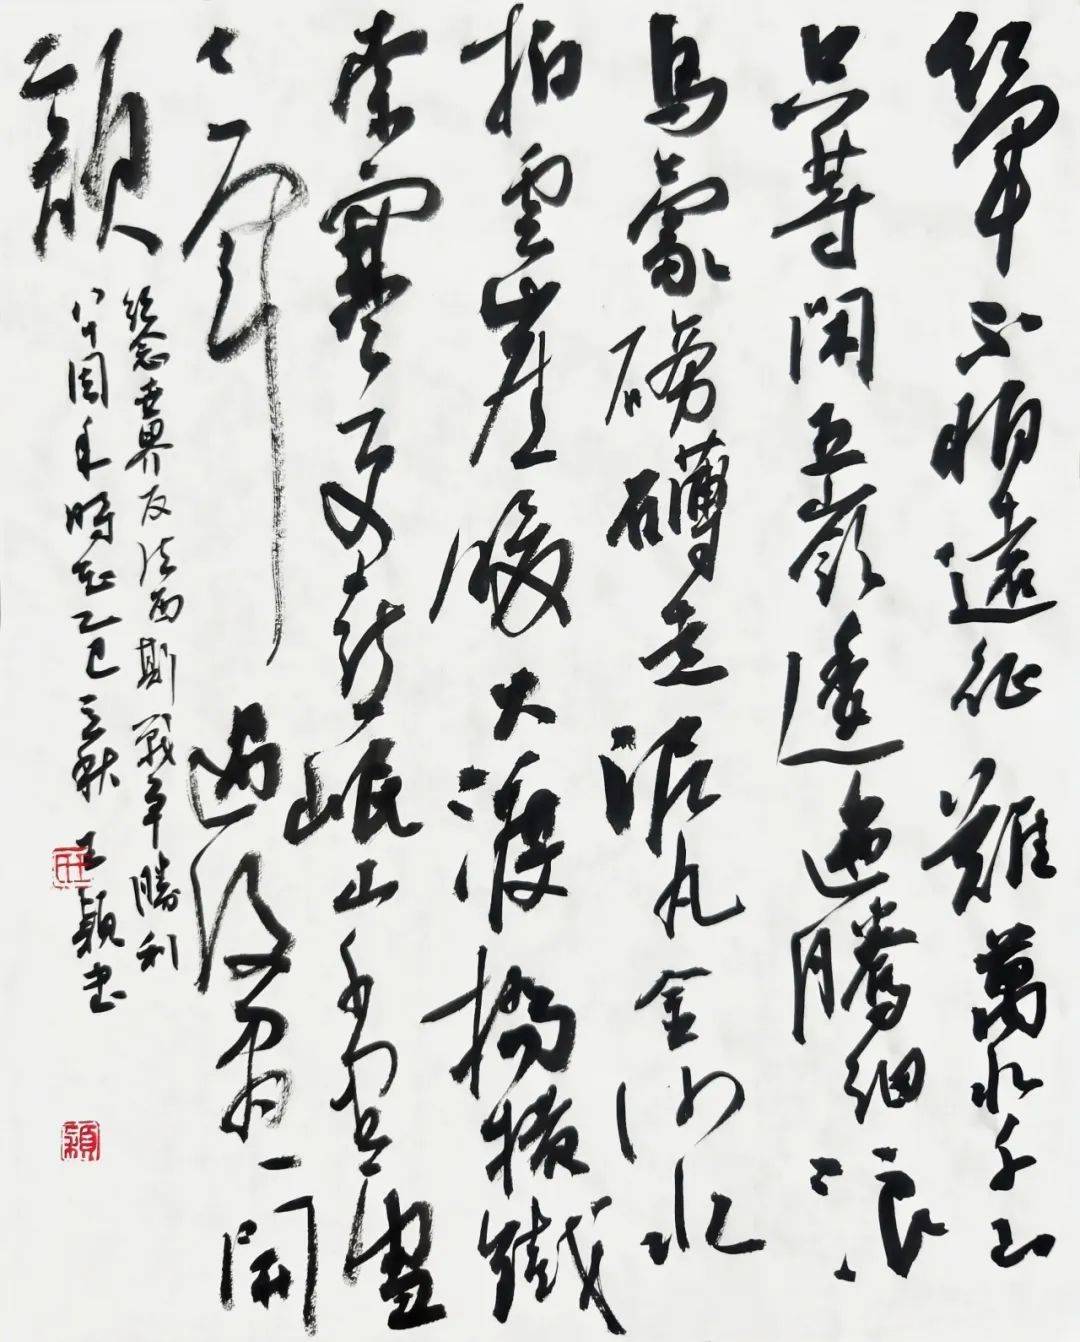 紅軍不怕遠征難萬水千山
只等閑五嶺逶迤騰細浪
烏蒙磅礴走泥丸金沙水
拍雲崖暖大渡橋橫鐵
索寒更喜岷山千里雪
三軍過後盡開
顏
紀念世界反法西斯戰爭勝利
八十周年時在乙巳立秋 王穎書
王
穎